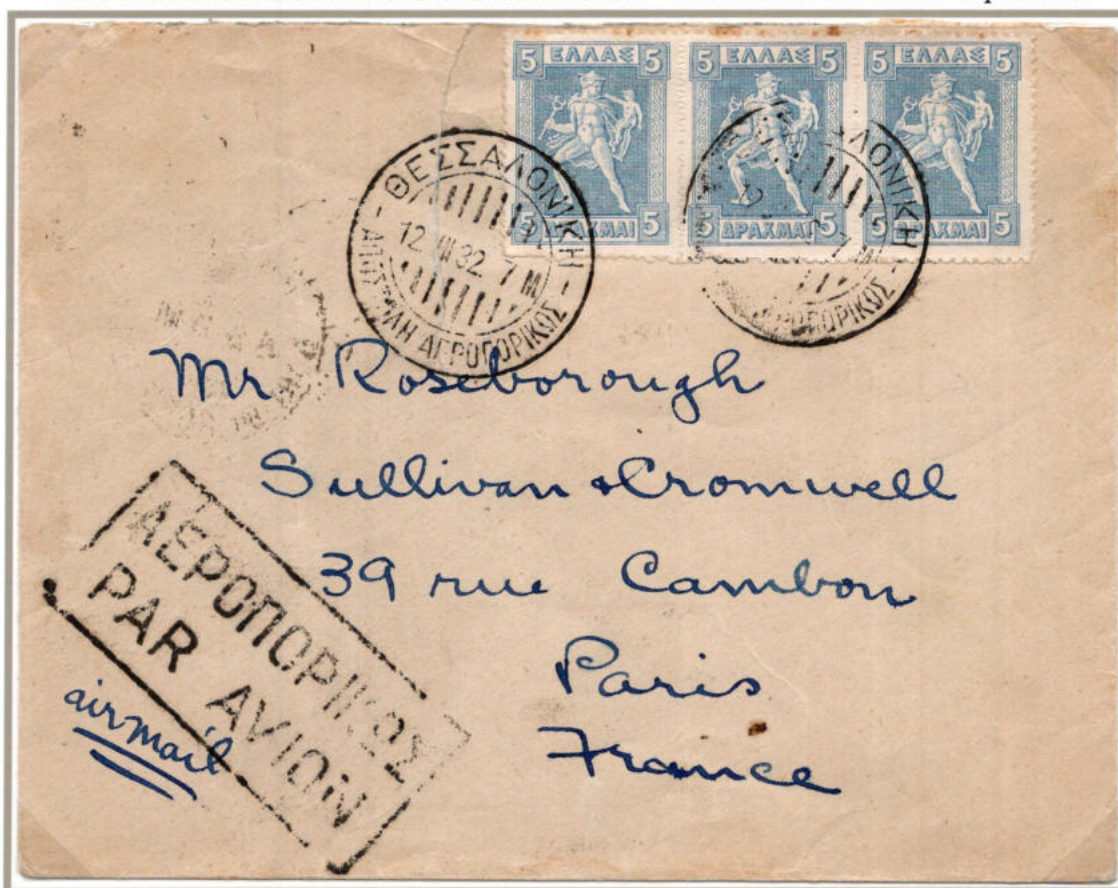 5 ΕΛΛΑΣ 5 5 ΕΛΛΑΣ 5 5 ΕΛΛΑΣ 5
5 5 ΔΡΑΧΜΑΙ 5 5 ΔΡΑΧΜΑΙ 5
ΘΕΣΣΑΛΟΝΙΚΗ
12 VII 32 7 Μ
ΑΕΡΟΠΟΡΙΚΩΣ
ΛΟΝΙΚΗ
12 7 Μ
ΠΟΡΙΚΩΣ
Mr Roseborough
Sullivan & Cromwell
39 rue Cambon
Paris
France
ΑΕΡΟΠΟΡΙΚΩΣ
PAR AVION
airmail